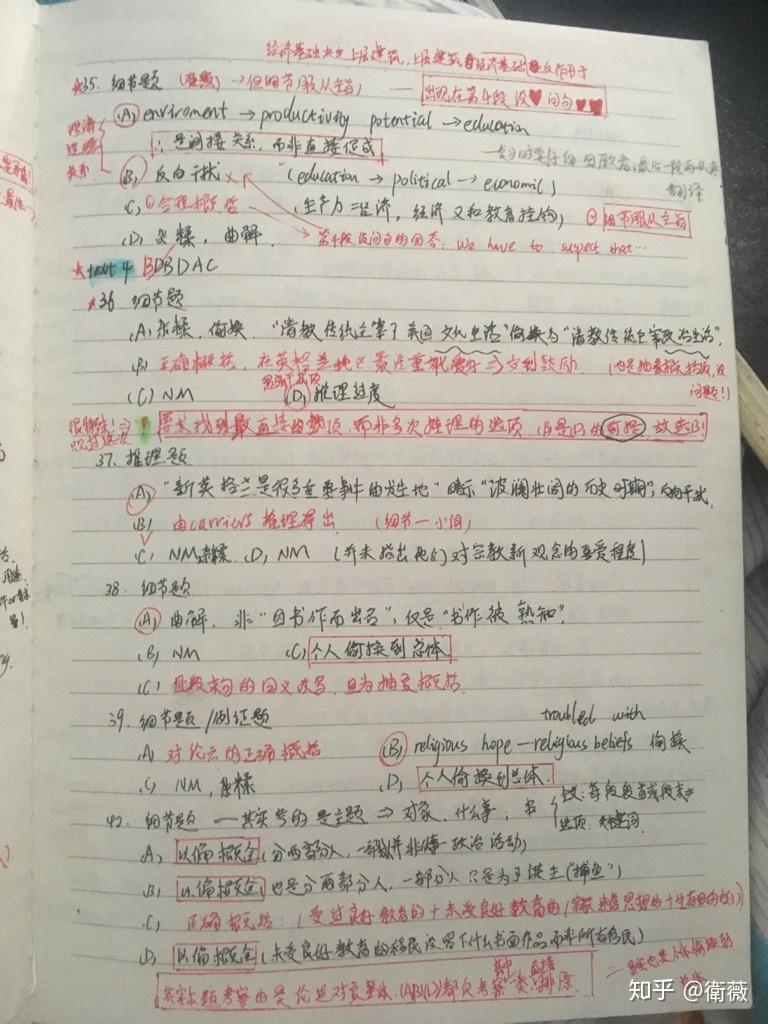 经济基础决定上层建筑,上层建筑对经济基础有反作用于
*35. 细节题 (难题) →但细节服从主旨) — 出现在第4段设♥问句♥♥
(A) enviroment → productivity potential → education
∴是间接关系,而非直接促成
(B) 反向干扰 × (education → political → economic)
(C) ①合理概括 (生产力=经济,经济又和教育挂钩) ②细节服从主旨
(D) 杂糅,曲解. 第4段设问句的回答: We have to suspect that…
*text 4 BDBDAC
*36 细节题
(A) 杂糅,偷换. "清教传统主宰了美国文化生活"偷换为"清教传统主宰政治生活".
(B) 正确概括,在英格兰地区最注重 受到鼓励 (也是抽象概括项,没问题!)
(C) NM (D) 推理过度
首先找到最直接的选项,而非多次推理的选项
37. 推理题
(A) "新英格兰是很多重要事件的发生地"暗示"波澜壮阔的历史时期",反向干扰.
(B) 由carriers推理得出 (细节一小问)
(C) NM杂糅. (D) NM (并未指出他们对宗教新观念的喜爱程度)
38. 细节题
(A) 曲解,非"因书作而出名",仅是"书作被熟知".
(B) NM (C) 个人偷换到总体
(C) 的同义改写,且为抽象概括.
39. 细节题/例证题 troubled with
(A) 对论点的正确概括 (B) religious hope — religious beliefs 偷换
(C) NM,杂糅 (D) 个人偷换到总体.
40. 细节题 — 其实考的是主题 ⇒ 对象,什么事,书
全文:每段段首或段末
选项:关键词
A) 以偏概全(分两部分人,一部分并非懂政治活动)
B) 以偏概全(也是分两部分人,一部分人只是为了谋生("捕鱼")
C) 正确概括:(受过良好教育的+未受良好教育的
D) 以偏概全(未受良好教育的移民没留下什么书面作品而非所有移民)
其实本题考察的是论述对象整体,(A)(B)(D)都仅考察其中一类,直接排除.
知乎 @衛薇